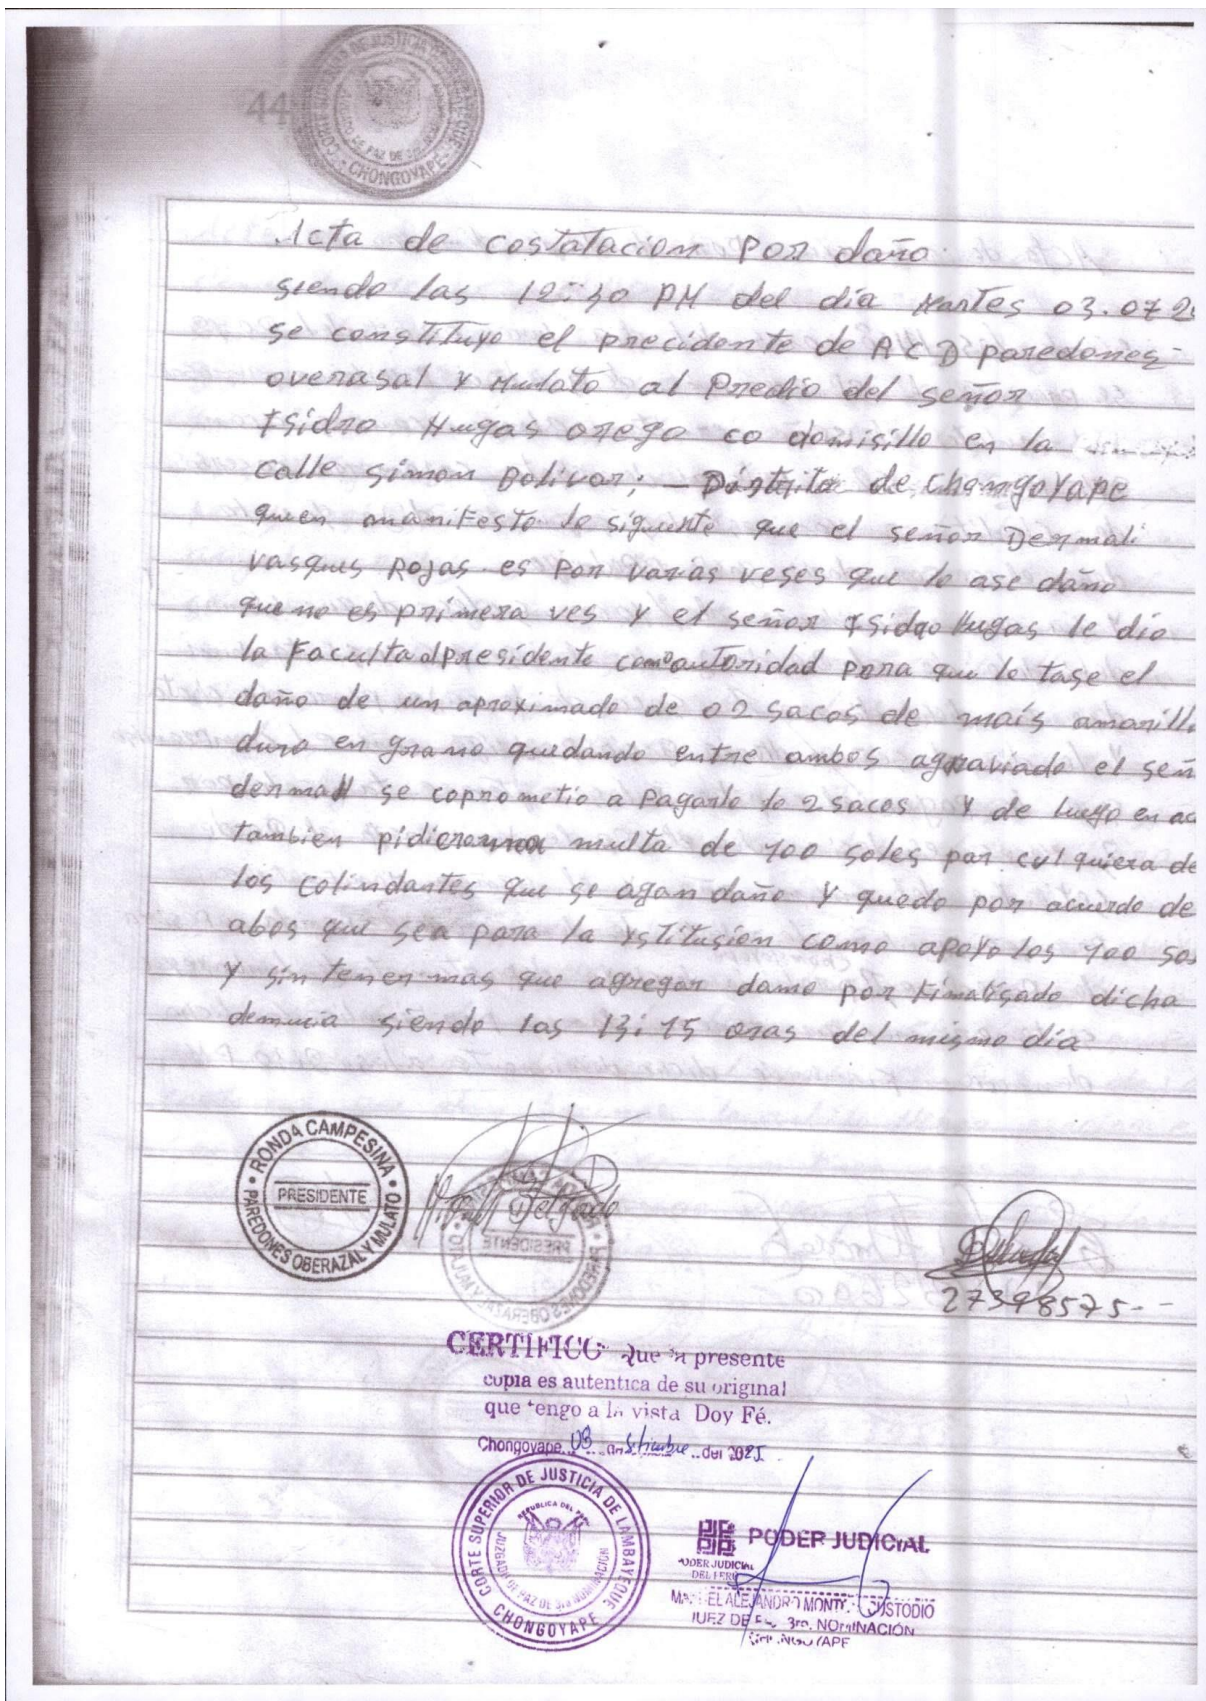 44
CHONGOYAPE
Acta de costatacion por daño.
siendo las 12:30 PM del dia Martes 03.07.2
se constituyo el precidente de A C D paredones
overasal y Mulato al Predio del señor
Isidro Hugas orego co domisillo en la
calle simon Bolivar; - Distrito de Chongoyape
quien manifesto lo siguente que el señor Dermali
vasques Rojas es por varias veses que lo ase daño
que no es primera ves y el señor Isidro Hugas le dio
la Facultad presidente como autoridad para que lo tase el
daño de un aproximado de 02 sacos de maís amarill
duro en grano quedando entre ambos agraviado el señ
dermali se coprometio a Pagarlo lo 2 sacos y de luego en ac
tambien pidieron una multa de 100 soles por culquiera de
los colindantes que se agan daño y quedo por acuerdo de
abos que sea para la ystitusion como apoyo los 100 so
y sin tener mas que agregar damo por Finalisado dicha
denucia siendo las 13:15 oras del mismo dia
RONDA CAMPESINA
PRESIDENTE
PAREDONES OBERAZAL Y MULATO
Delgado
PRESIDENTE
27398575--
CERTIFICO: Que la presente
copia es autentica de su original
que tengo a la vista Doy Fé.
Chongoyape, 03 de Setiembre del 2025
CORTE SUPERIOR DE JUSTICIA DE LAMBAYEQUE
REPUBLICA DEL PERU
JUZGADO DE PAZ DE 3ra NOMINACION
CHONGOYAPE
PODER JUDICIAL
PODER JUDICIAL
DEL PERÚ
ALEJANDRO CUSTODIO
JUEZ DE PAZ 3ra. NOMINACIÓN
CHONGOYAPE